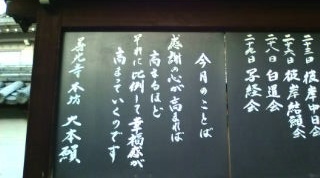 二十三日 彼岸中日会
二十六日 彼岸結願会
二十八日 白道会
二十日 写経会
今月のことば
感謝の心が高まれば
高まるほど
それに比例して幸福感が
高まっていくのです
善光寺 本坊 大本願